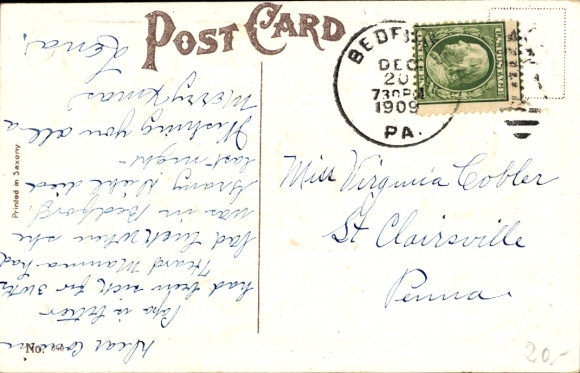 POST CARD
BEDFORD
DEC
20
730PM
1909
PA.
U.S. POSTAGE
Miss Virginia Cobler
St Clairsville
Penna.
Dear Cousin
Papa is better
had been sick for 3 wks
Heard Mamma had
bad luck when she
was in Bedford.
Grany died
last night -
Wishing you all a
Merry Xmas
Lena.
Printed in Saxony
No.
20,-